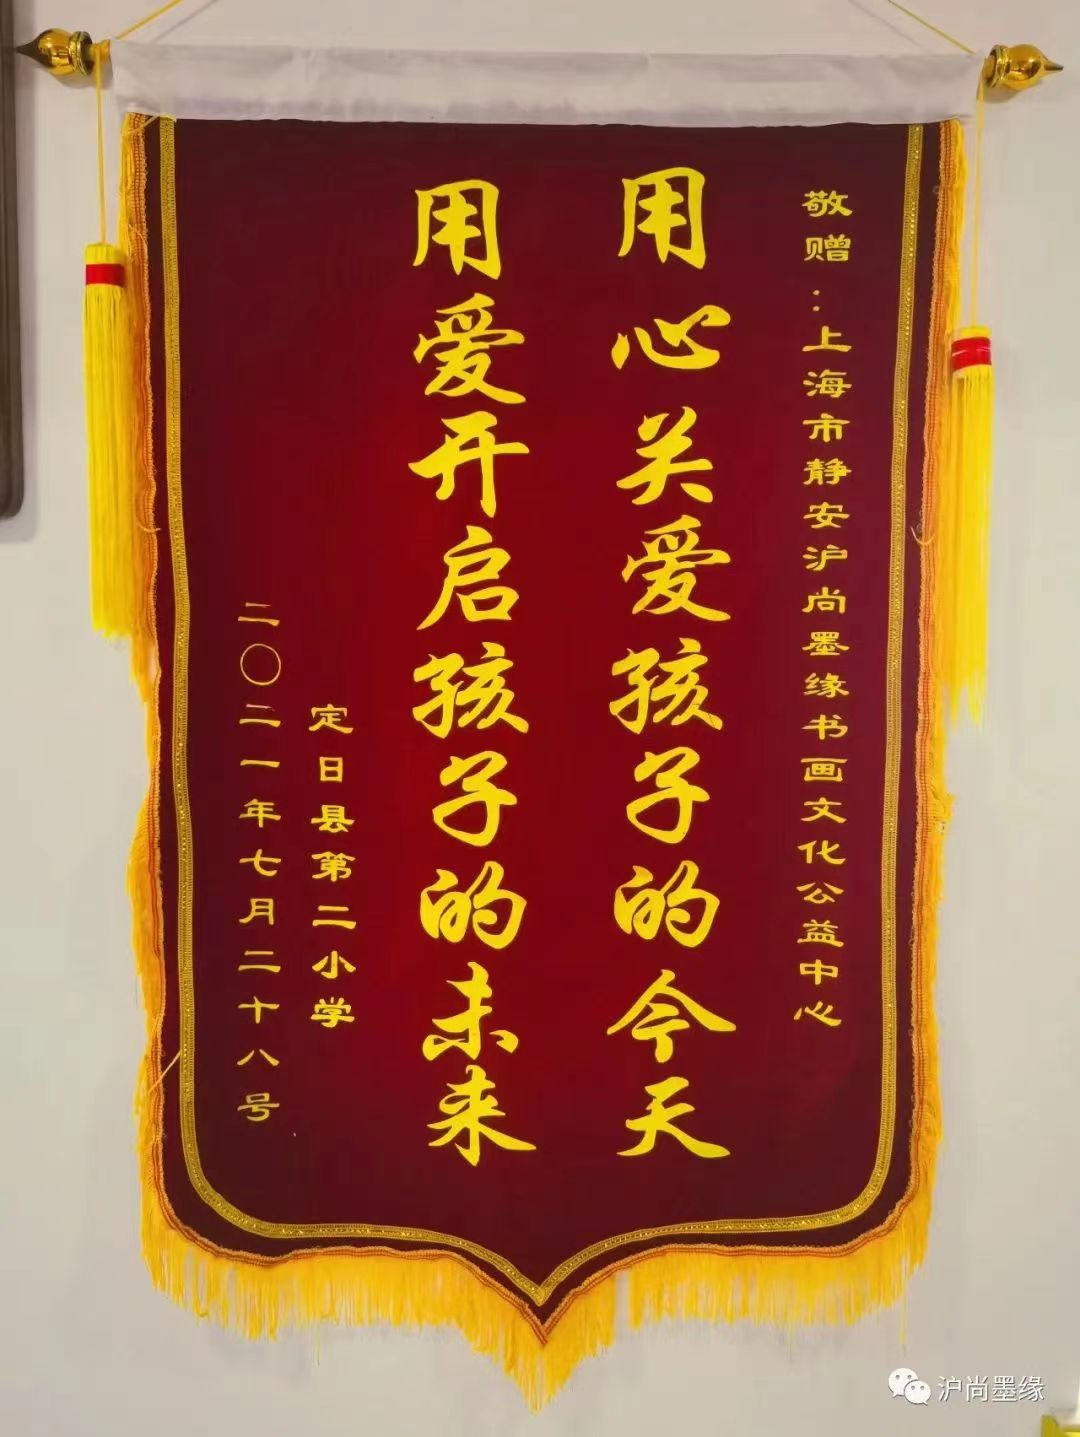 敬赠:上海市静安沪尚墨缘书画文化公益中心
用心关爱孩子的今天
用爱开启孩子的未来
定日县第二小学
二〇二一年七月二十八号
沪尚墨缘